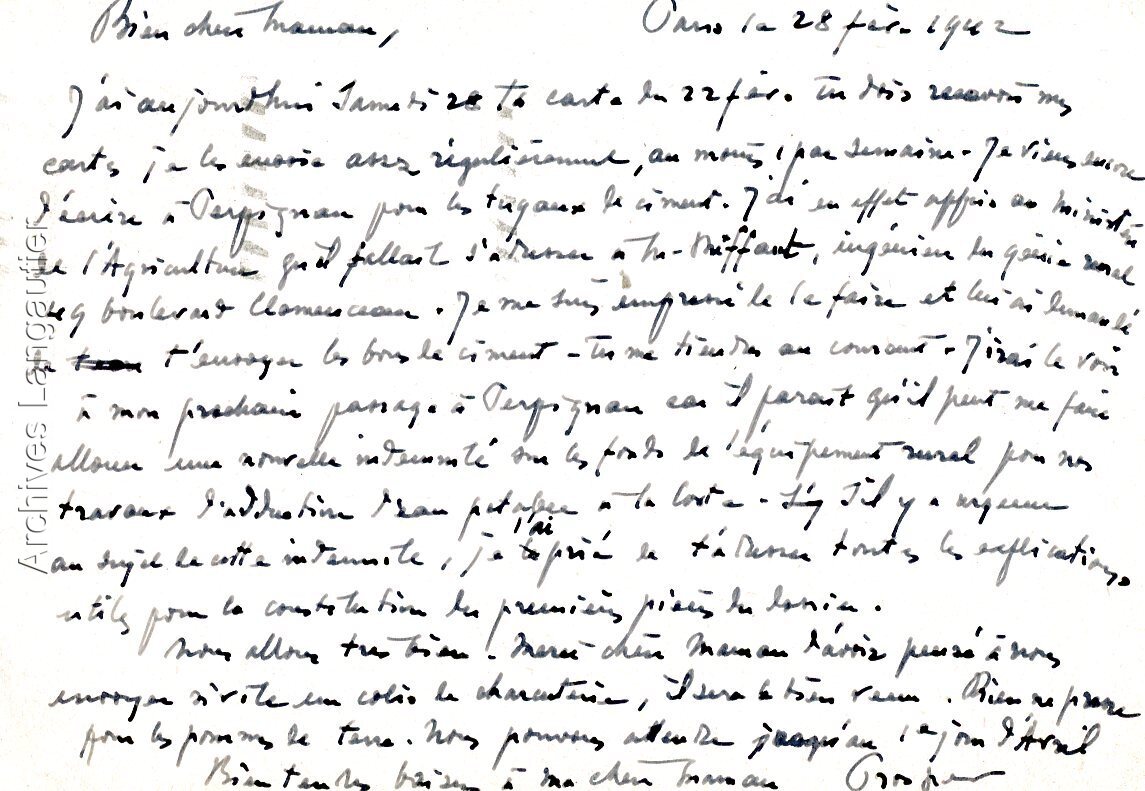 Bien chère Maman, Paris le 28 fév. 1942
J'ai aujourdhui Samedi 28 ta carte du 22 fév. tu dois recevoir mes
cartes je les envoie assez régulièrement, au moins 1 par semaine - Je viens encore
d'écrire à Perpignan pour les tuyaux de ciment. J'ai en effet appris au Ministère
de l'Agriculture qu'il fallait s'adresser à Mr. , ingénieur du génie rural
boulevard Clemenceau. Je me suis empressé de le faire et lui ai demandé
de t'envoyer les bons de ciment - tu me tiendras au courant - J'irai le voir
à mon prochain passage à Perpignan car il parait qu'il peut me faire
allouer une nouvelle indemnité sur les fonds de l'équipement rural pour nos
travaux d'adduction d'eau potable à la Coste - S'il y a urgence
au sujet de cette indemnité, je l'ai prié de t'adresser toutes les explications
utiles pour la constitution des premières pièces du dossier.
Nous allons très bien. Merci chère Maman d'avoir pensé à nous
envoyer si vite un colis de charcuterie, il sera le bien venu. Rien ne presse
pour les pommes de terre. Nous pouvons attendre jusqu'au 1er jour d'Avril
Bien tendres baisers à ma chère Maman Prosper
Archives Langautier